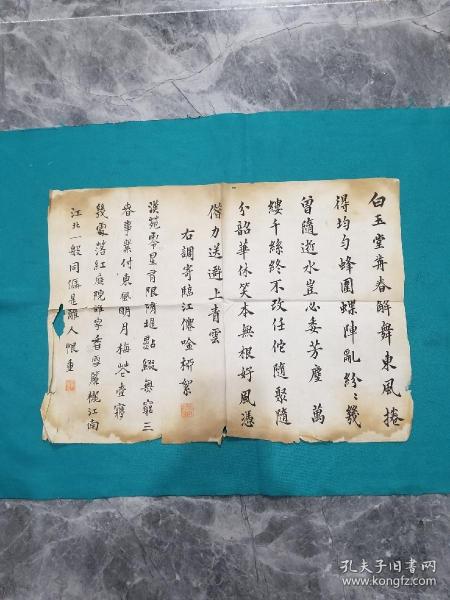 白玉堂前春解舞東風捲
得均勻蜂圍蝶陣亂紛〻幾
曾隨逝水豈必委芳塵 萬
縷千絲終不改任佗隨聚隨
分韶華休笑本無根好風憑
借力送上青雲
右調寄臨江僊唫柳絮
漢苑零星有限隋堤點綴無窮三
春事業付東風明月梅花壹夢
幾處落紅庭院誰家香雪簾櫳江南
江北一般同偏是離人恨重
孔夫子旧书网
www.kongfz.com